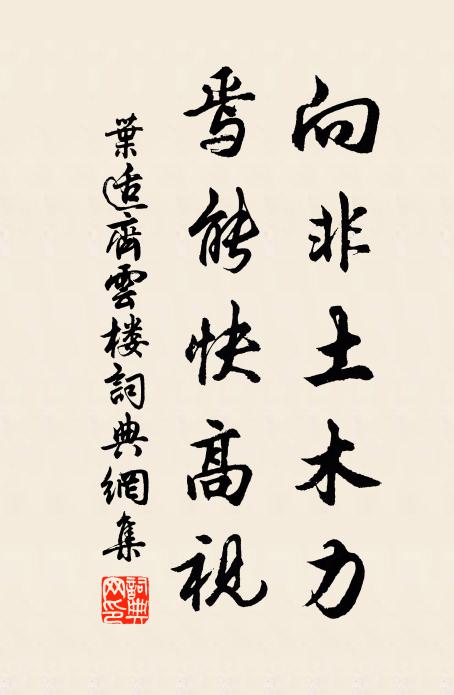 向非土木力
焉能快高視
葉适齊雲楼詞典網集
詞典
网印